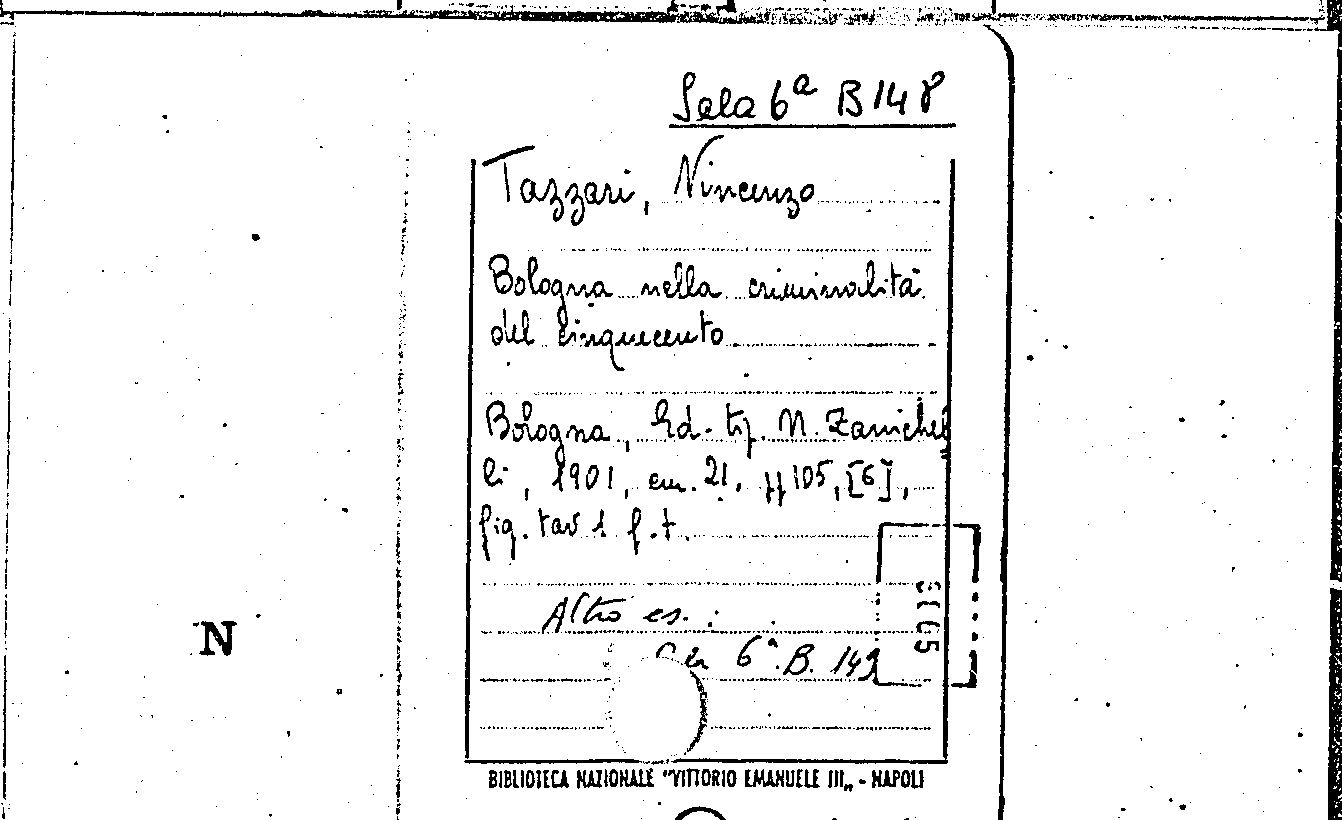 Sala 6ª B 148
Tazzari, Vincenzo
Bologna nella criminalità
del cinquecento
Bologna, Ed. tip. N. Zanichel
li, 1901, cm. 21. pp 105, [6],
fig. tav 1 f.t.
Altro es. :
6ª. B. 149
N
BIBLIOTECA NAZIONALE "VITTORIO EMANUELE III„ - NAPOLI